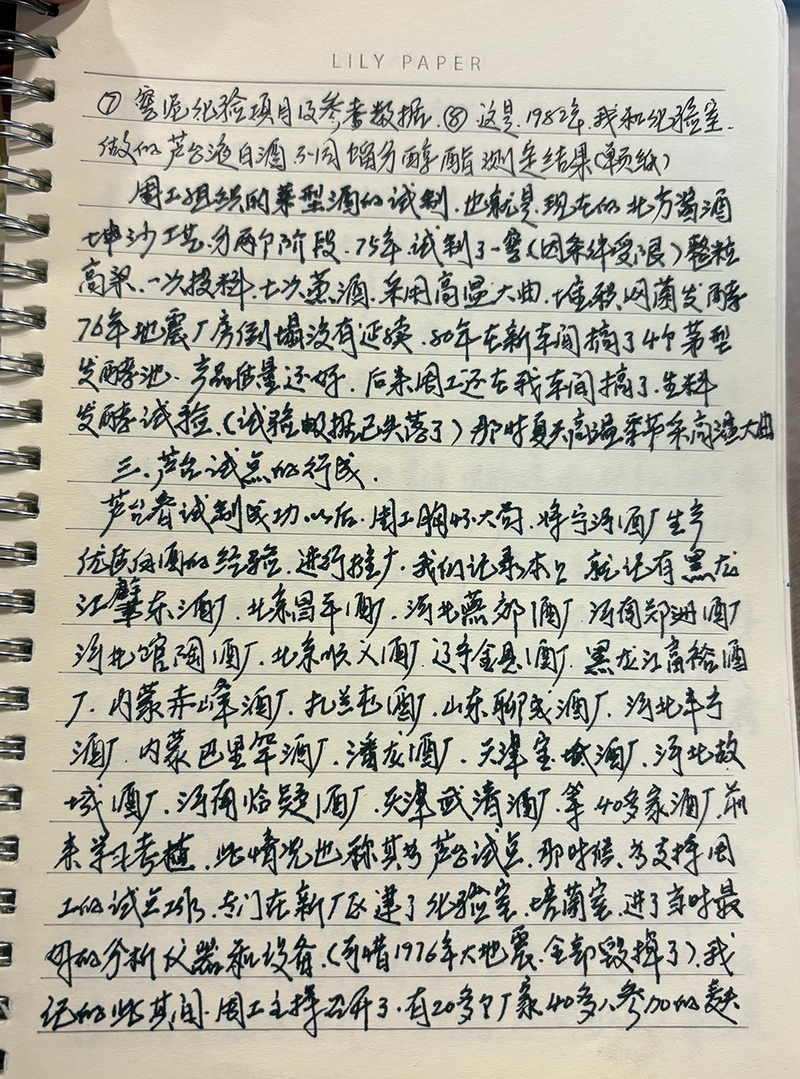 LILY PAPER
⑦ 窖泥化验项目及参考数据. ⑧ 这是.1982年.我和化验室.
做的芦台液白酒.不同馏分醇酯测定结果(单页纸)
周工组织的茅型酒的试制.也就是.现在的北方酱酒
坤沙工艺.分两个阶段.75年.试制了一窖(因条件受限)整粒
高梁.一次投料.七次蒸酒.采用高温大曲.堆积网菌发酵
76年地震厂房倒塌没有延续.80年在新车间搞了4个茅型
发酵池.产品质量还好.后来周工还在我车间搞了.生料
发酵试验.(试验数据已失落了)那时夏天高温季节采高温大曲
三.芦台试点的行成.
芦台春试制成功以后.周工胸怀大局.将宁河酒厂生产
优质白酒的经验.进行推广.我们记录本上就记有黑龙
江肇东酒厂.北京昌平酒厂.河北燕郊酒厂.河南郑州酒厂
河北馆陶酒厂.北京顺义酒厂.辽宁金县酒厂.黑龙江富裕酒
厂.内蒙赤峰酒厂.扎兰屯酒厂.山东聊城酒厂.河北丰宁
酒厂.内蒙巴里罕酒厂.潘龙酒厂.天津宝坻酒厂.河北故
城酒厂.河南临酒厂.天津武清酒厂.等40多家酒厂.前
来学习考植.此情况也称其为芦台试点.那时候.为支持周
工的试点工作.专门在新厂区建了化验室.培菌室.进了当时最
好的分析仪器和设备.(可惜1976年大地震.全部毁掉了).我
记的此其间.周工主持召开了.有20多个厂家.40多人参加的麸